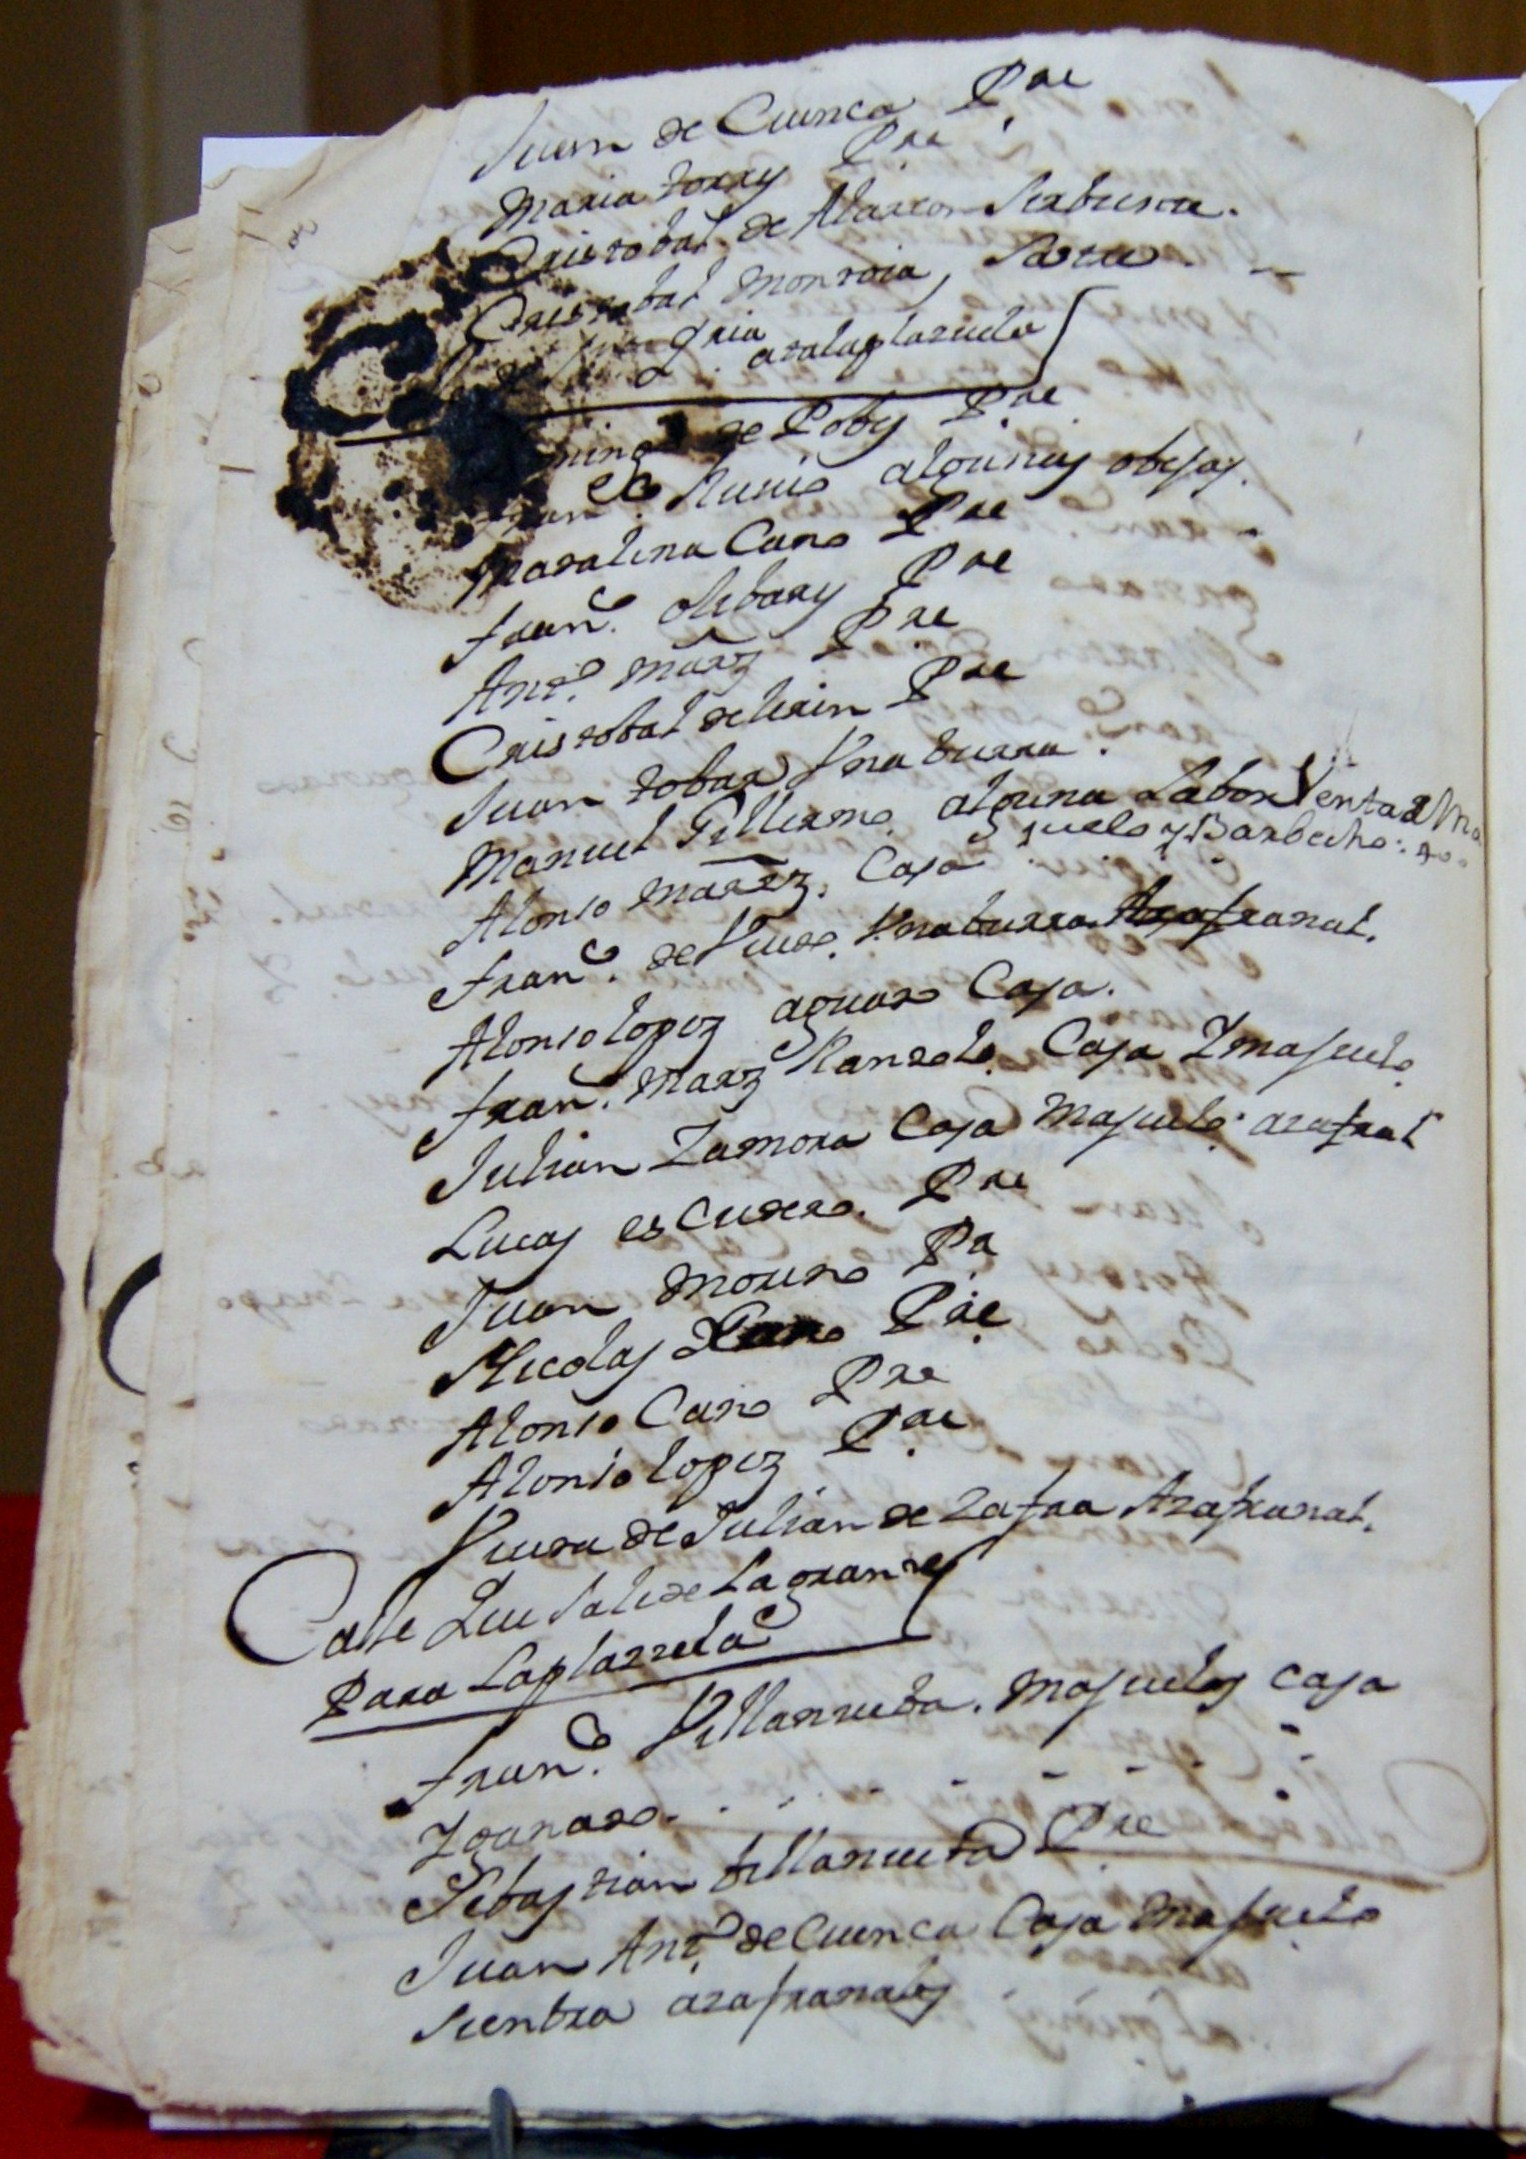 Juan de Cuenca Pre
Maria torry Pre
Cristobal de Alarcon Serbicia.
Cristobal Monroia, Sastre.
azalaplazuela
de Poby Pre
Franco. Rucio algunas obejas.
Madalena Cano Pre
Franco. olibary Pre
Anto. Marz Pre
Cristobal deliren Pre
Juan tobar Vna burra.
Manuel Gillermo alguna Labor Venta a Ma
juelo y Barbecho.
Alonso Martz. Casa
Franco. de Vudo. Vna burra Azafranal.
Alonso lopez aguado Casa.
Franco. Marz Ranzolo Casa Y majuelo
Julian Zamora Casa Majuelo azafral
Lucas escudero. Pre
Juan Moreno Pa
Nicolas Cano Pre
Alonso Cano Pre
Alonso lopez Pre
Viuda de Julian de Zafra Azafranal.
Calle Que Sale de La grande
Para La plazuela
Franco. Villanueba. Majuelos casa
Y ganado.
Sebastian billanueba Pre
Juan Anto. de Cuenca Casa Majuelo
Sienbra azafranales